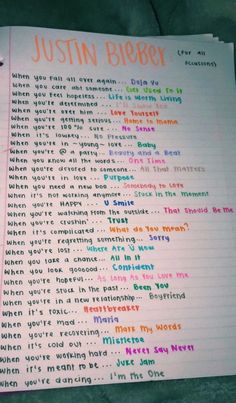 JUSTIN BIEBER (For all occasions)
When you fall all over again... Deja Vu
When you care abt someone... Get Used To It
When you feel hopeless... Life is Worth Living
When you're determined... I'll Show You
When you're over him... Love Yourself
When you're getting serious... Home to Mama
When you're 100% sure... No Sense
When it's lowkey... No Pressure
When you're in ~young~ love... Baby
When you're @ a party... Beauty and a Beat
When you know all the words... One Time
When you're devoted to someone... All That Matters
When you're in love... Purpose
When you need a new boo... Somebody to Love
When it's not working anymore... Stuck in the Moment
When you're HAPPY... U Smile
When you're watching from the outside... That Should Be Me
When you're crushin'... Trust
When it's complicated... What do You Mean?
When you're regretting something... Sorry
When you're lost... Where Are Ü Now
When you take a chance... All In It
When you look gooood... Confident
When you're hopeful... As Long As You Love Me
When you're stuck in the past... Been You
When you're in a new relationship... Boyfriend
When it's toxic... Heartbreaker
When you're mad... Maria
When you're recovering... Mark My Words
When it's cold out... Mistletoe
When you're working hard... Never Say Never
When it's meant to be... Juke Jam
When you're dancing... I'm the One